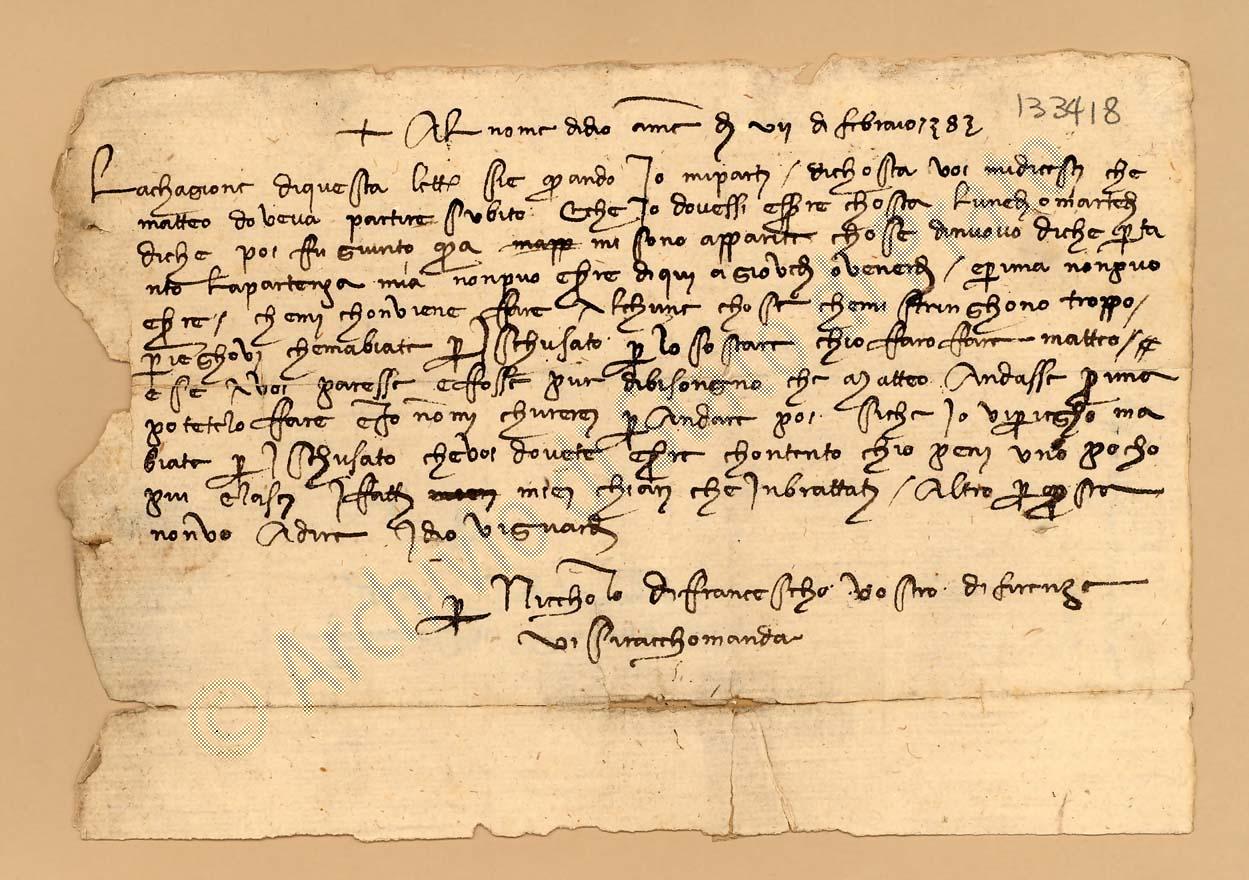 133418
+ Al nome di dio ame dì vii di febraio 1383
La chagione di questa lettª sie quando Io mi parti / di chosta voi mi diciesti che
matteo doveva partire subito E che Io dovessi essere chosta lunedi o martedi
di che poi fu giunto qua mi sono apparite chose di nuovo di che per ta
nto la partenza mia non puo essere di qui a giovedi o venerdi / e prima non puo
essere / che mi chonviene fare alchune chose che mi stringhono troppo /
prieghovi che mabiate per Ischusato per lo sostare chio faro fare matteo /
e se a voi paresse e fosse pure di bisongno che Matteo Andasse prima
potetelo fare e Io no mi churerei per Andare poi siche Io vi priegho ma
biate per Ischusato che voi dovete essere chontento chio peni uno pocho
piu e lasci I fatti miei chiari che Inbrattati / Altro per questa
non vo A dire Idio vi guardi
per Niccholo di francescho vostro di firenze
vi si racchomanda
© Archivio di Stato di Prato